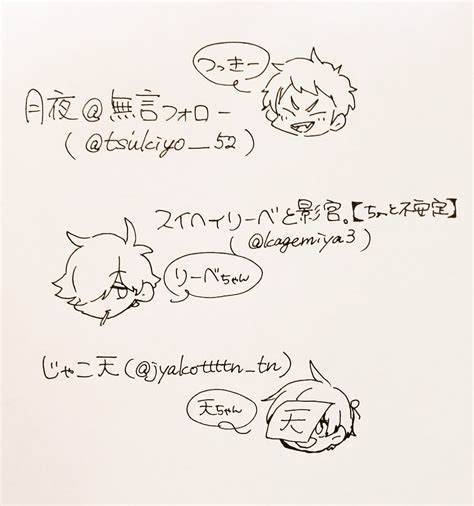 つっきー
月夜@無言フォロー
(@tsukiyo_52)
スイヘイリーべと影宮。【ちょっと不安定】
(@kagemiya3)
リーベちゃん
じゃこ天(@jyakottttn_tn)
天ちゃん
天